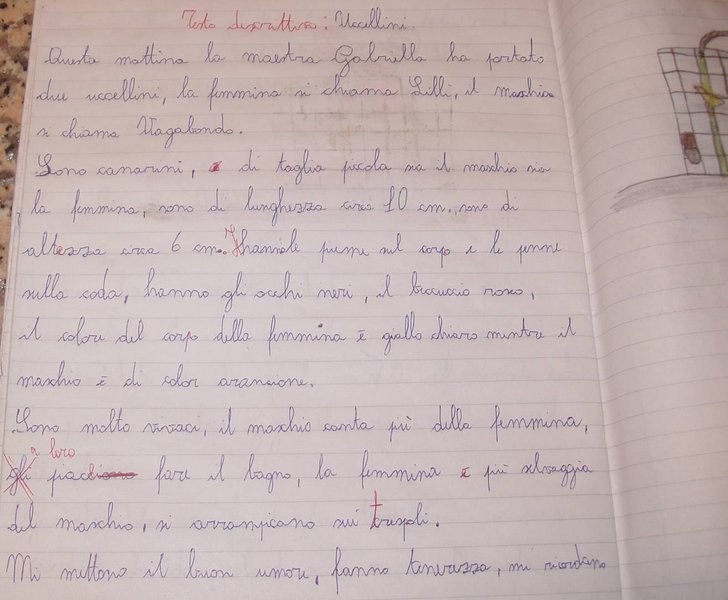 Testo descrittivo: Uccellini.
Questa mattina la maestra Gabriella ha portato
due uccellini, la femmina si chiama Lilli, il maschio
si chiama Vagabondo.
Sono canarini, è di taglia piccola sia il maschio sia
la femmina, sono di lunghezza circa 10 cm., sono di
altezza circa 6 cm. Hanno le piume sul corpo e le penne
sulla coda, hanno gli occhi neri, il beccuccio rosso,
il colore del corpo della femmina è giallo chiaro mentre il
maschio è di color arancione.
Sono molto vivaci, il maschio canta più della femmina,
a loro
gli piace fare il bagno, la femmina è più selvaggia
del maschio, si arrampicano sui trespoli.
Mi mettono il buon umore, fanno tenerezza, mi ricordano